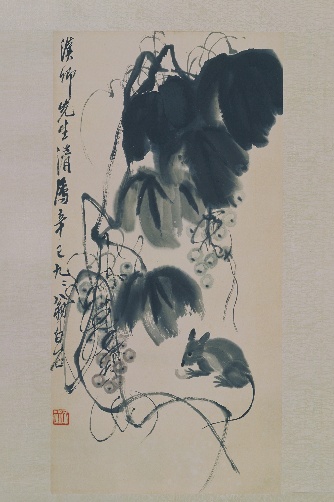 漢卿先生清屬辛巳九八翁白石